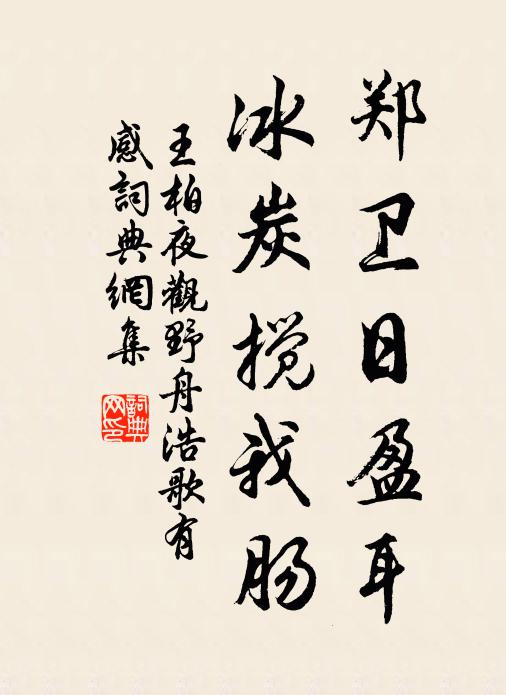 郑卫日盈耳
冰炭搅我肠
王柏夜觀野舟浩歌有
感詞典網集
詞典网印